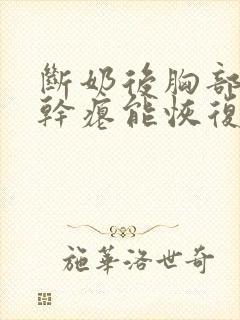 斷奶後胸部
幹癟能恢復
施華洛世奇